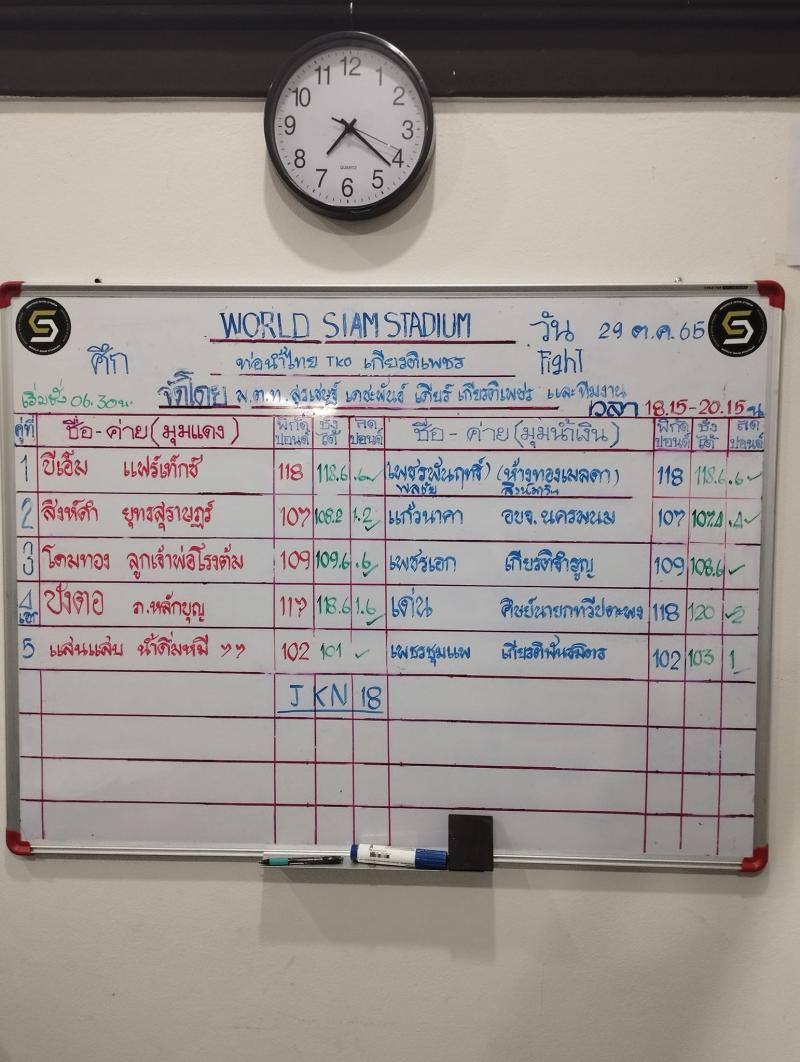 12 1 2 3 4 5 6 7 8 9 10 11
QUARTZ
WORLD SIAM STADIUM
วัน 29 ต.ค.65
ศึก ท่อน้ำไทย TKO เกียรติเพชร Fight
เริ่มชั่ง 06.30น. จัดโดย พ.ต.ท. สุรเชษฐ์ เตชะพันธ์ เสี่ยร์ เกียรติเพชร และทีมงาน
เวลา 18.15-20.15 น
คู่ที่ ชื่อ - ค่าย (มุมแดง) พิกัด ปอนด์ ชั่งได้ ลด ปอนด์ ชื่อ - ค่าย (มุมน้ำเงิน) พิกัด ปอนด์ ชั่งได้ ลด ปอนด์
1 บีเอ็ม แฟร์เท็กซ์ 118 118.6 .6 เพชรพันฤทธิ์ (ห้างทองเมลดา) 118 118.6 .6
2 สิงห์ดำ ยุทธสุราษฎร์ 107 108.2 1.2 แก้วนาคา อบจ.นครพนม 107 107.4 .4
3 โดมทอง ลูกเจ้าพ่อโรงต้ม 109 109.6 .6 เพชรเอก เกียรติจำรูญ 109 108.6
4 เอก ปังตอ ภ.หลักบุญ 117 118.6 1.6 เด่น ศิษย์นายกทวีปตะพง 118 120 2
5 แสนแสบ น้ำดื่มหมี 102 101 เพชรชุมแพ เกียรติพันธมิตร 102 103 1
JKN 18